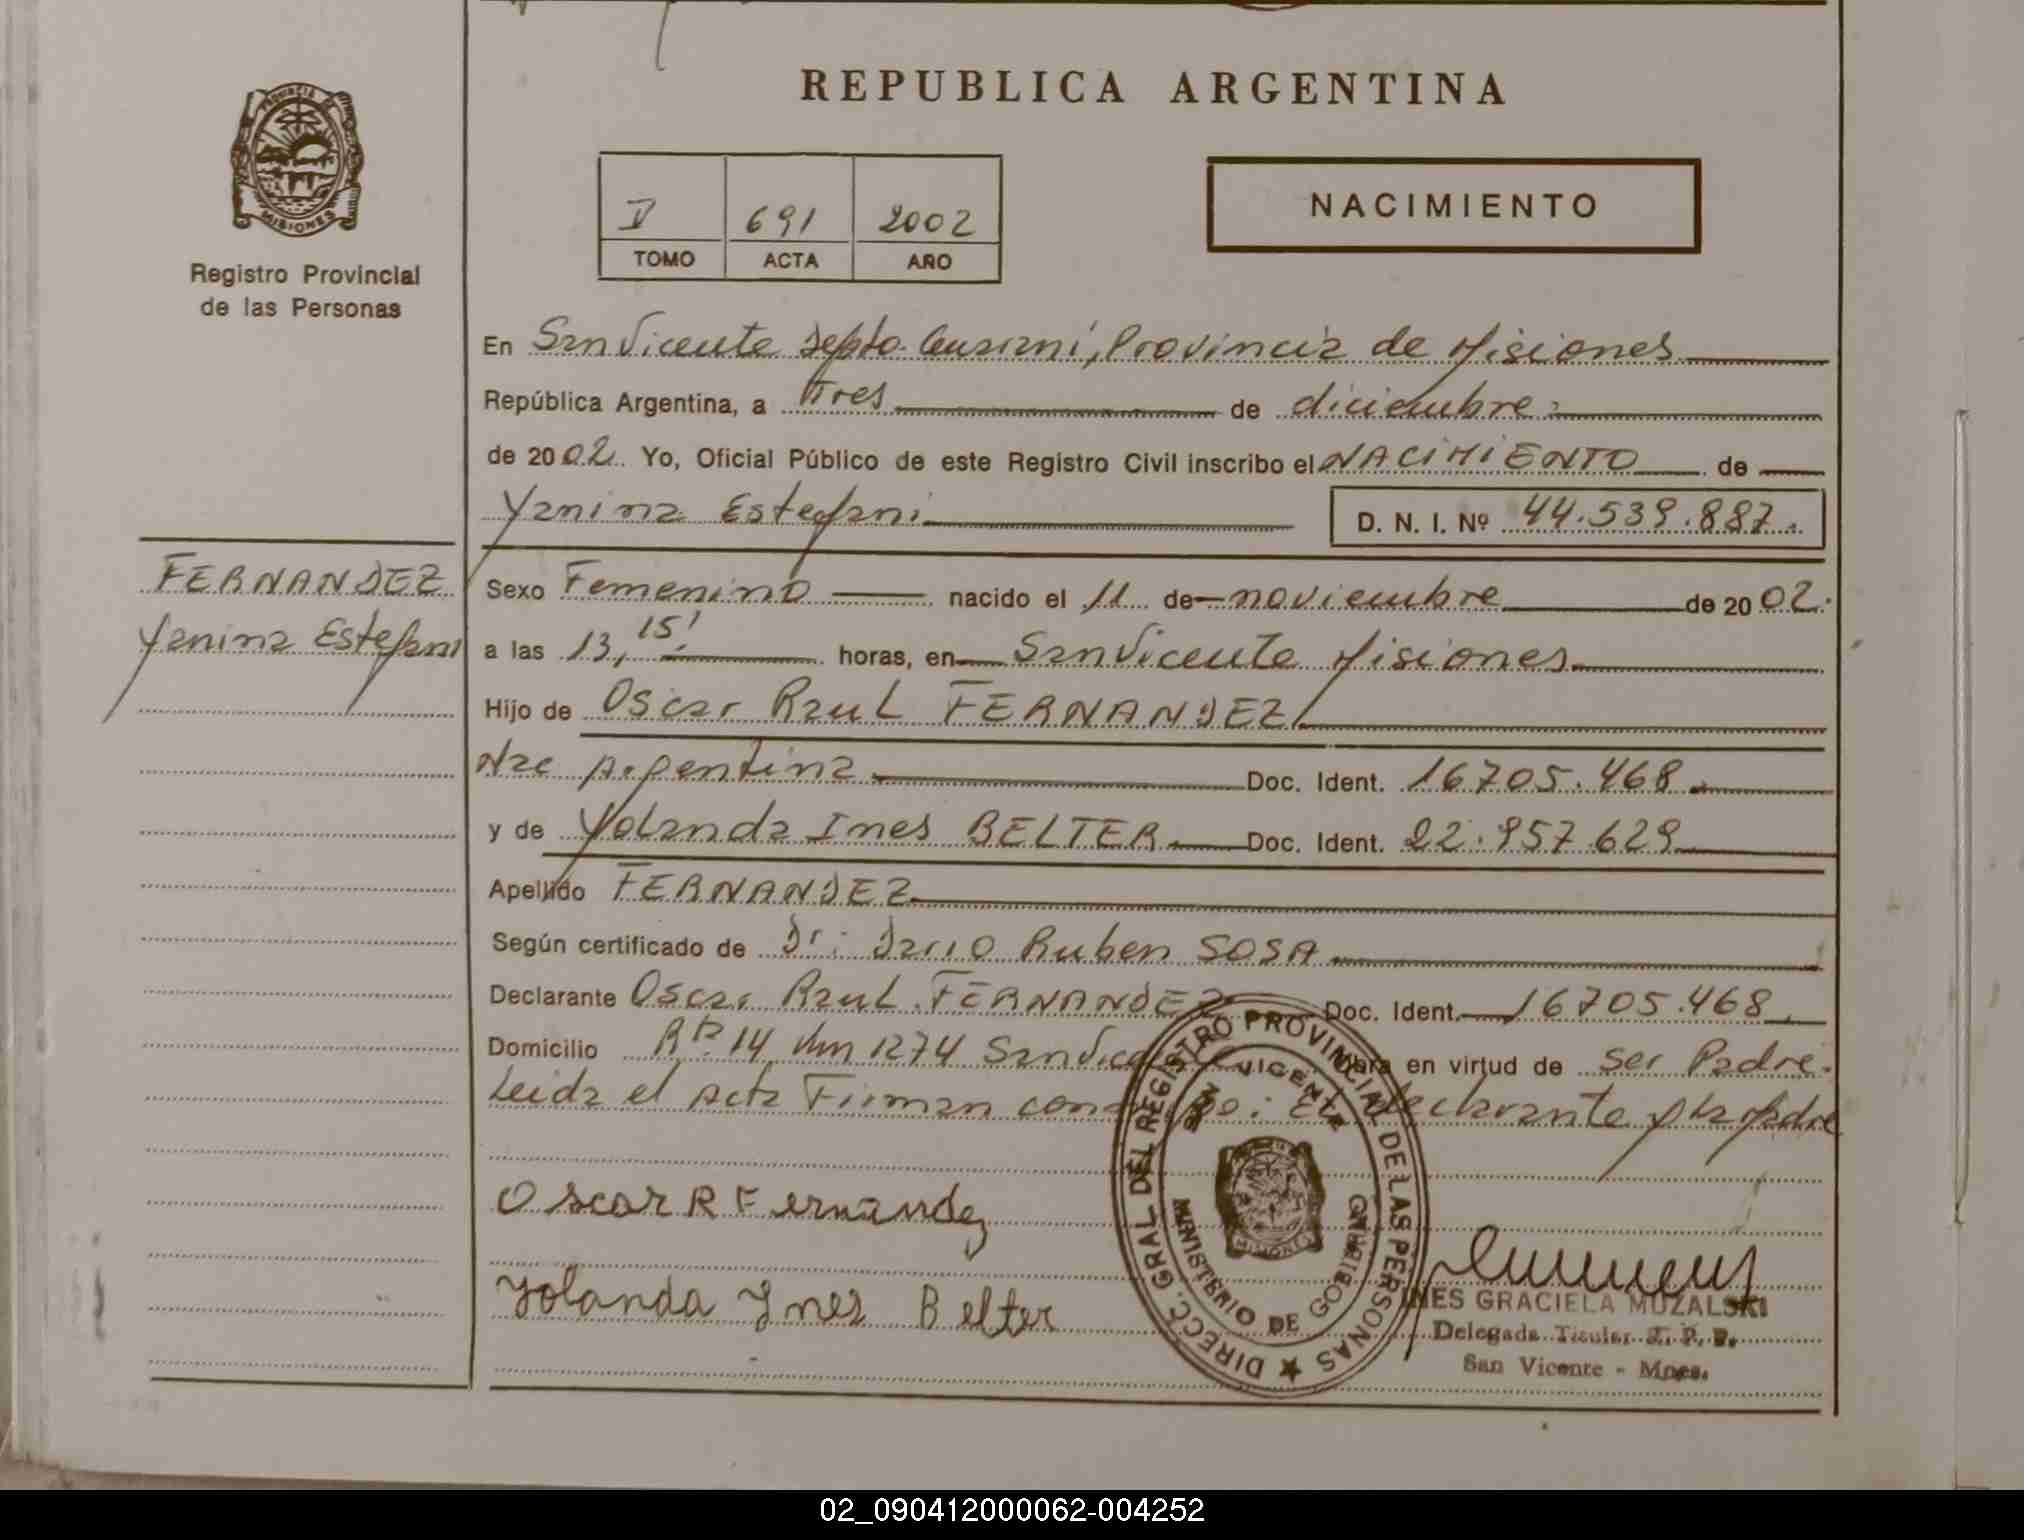 REPUBLICA ARGENTINA
PROVINCIA DE
MISIONES
Registro Provincial
de las Personas
V 691 2002
TOMO ACTA AÑO
NACIMIENTO
En San Vicente Depto. Guarani, Provincia de Misiones
República Argentina, a Tres de diciembre
de 2002. Yo, Oficial Público de este Registro Civil inscribo el NACIMIENTO de
Yanina Estefani D. N. I. Nº 44.539.887.
FERNANDEZ
Yanina Estefani
Sexo Femenino nacido el 11 de noviembre de 2002.
a las 13,15' horas, en San Vicente Misiones
Hijo de Oscar Raul FERNANDEZ
Nac Argentina Doc. Ident. 16705.468.
y de Yolanda Ines BELTER Doc. Ident. 22.957.629
Apellido FERNANDEZ
Según certificado de Dr: Dario Ruben SOSA
Declarante Oscar Raul FERNANDEZ Doc. Ident. 16705.468.
Domicilio Rta 14 Km 1274 San Vicente Obra en virtud de ser Padre.
Leida el Acta Firman conmigo: El declarante y la Madre
Oscar R Fernandez
Yolanda Ynes Belter
DIRECC. GRAL. DEL REGISTRO PROVINCIAL DE LAS PERSONAS
SAN VICENTE
MINISTERIO DE GOBIERNO
MISIONES
INES GRACIELA MUZALSKI
Delegada Titular J. P. P.
San Vicente - Mnes.
02_090412000062-004252